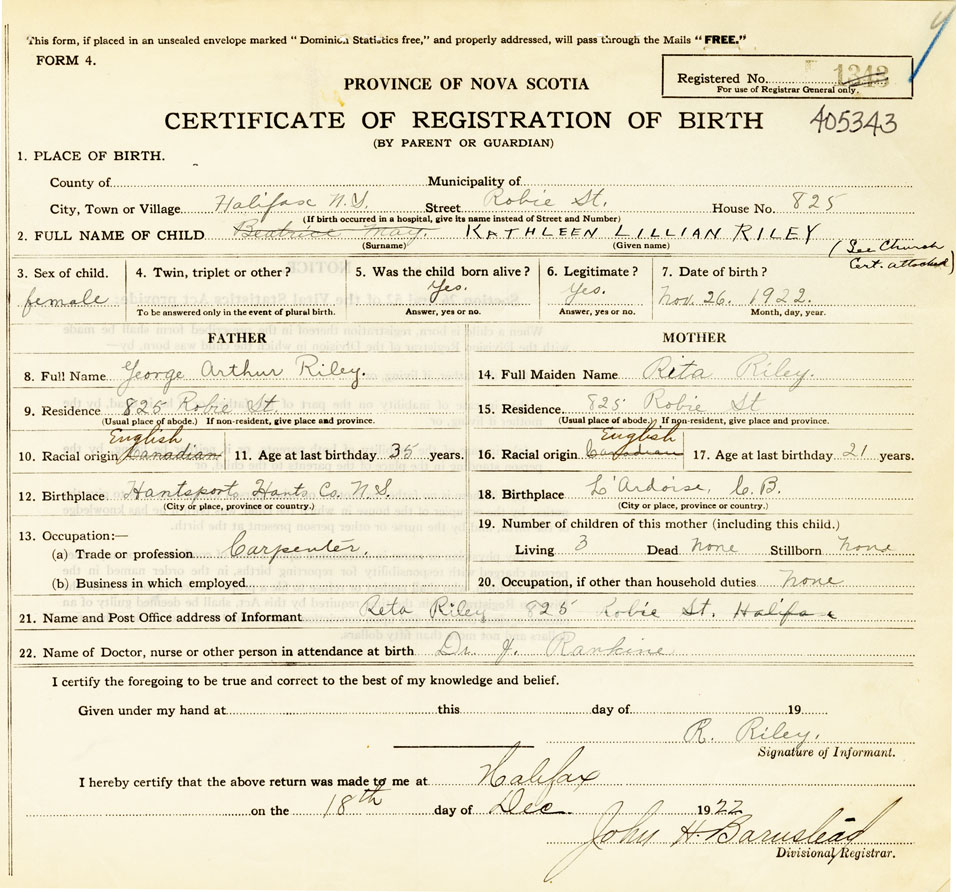 This form, if placed in an unsealed envelope marked “Dominion Statistics free,” and properly addressed, will pass through the Mails “FREE.”
FORM 4.
PROVINCE OF NOVA SCOTIA
Registered No. 1343
For use of Registrar General only.
CERTIFICATE OF REGISTRATION OF BIRTH 405343
(BY PARENT OR GUARDIAN)
1. PLACE OF BIRTH.
County of Municipality of
City, Town or Village Halifax N.S. Street Robie St. House No. 825
(If birth occurred in a hospital, give its name instead of Street and Number)
2. FULL NAME OF CHILD Beatrice May. KATHLEEN LILLIAN RILEY
(Surname) (Given name)
(See Church
Cert. attached)
3. Sex of child. 4. Twin, triplet or other? 5. Was the child born alive? 6. Legitimate? 7. Date of birth?
female Yes. Yes. Nov. 26. 1922.
To be answered only in the event of plural birth. Answer, yes or no. Answer, yes or no. Month, day, year.
FATHER MOTHER
8. Full Name George Arthur Riley. 14. Full Maiden Name Rita Riley.
9. Residence 825 Robie St. 15. Residence 825 Robie St
(Usual place of abode.) If non-resident, give place and province. (Usual place of abode.) If non-resident, give place and province.
English English
10. Racial origin Canadian 11. Age at last birthday 35 years. 16. Racial origin Canadian 17. Age at last birthday 21 years.
12. Birthplace Hantsport, Hants Co. N.S. 18. Birthplace L'Ardoise, C.B.
(City or place, province or country.) (City or place, province or country.)
19. Number of children of this mother (including this child.)
13. Occupation:—
(a) Trade or profession Carpenter. Living 3 Dead None Stillborn None
(b) Business in which employed 20. Occupation, if other than household duties None
21. Name and Post Office address of Informant Reta Riley 825 Robie St. Halifax
22. Name of Doctor, nurse or other person in attendance at birth Dr. J. Rankine
I certify the foregoing to be true and correct to the best of my knowledge and belief.
Given under my hand at this day of 19
R. Riley.
Signature of Informant.
I hereby certify that the above return was made to me at Halifax
on the 18th day of Dec. 1922
John H. Barnstead
Divisional Registrar.